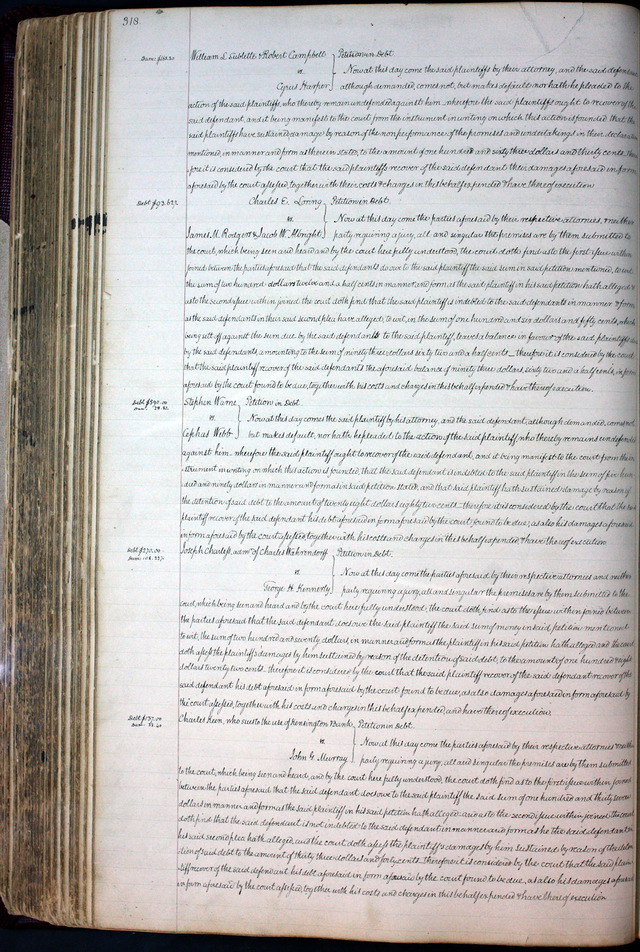 318.
Dam: $163.30 William L Sublette & Robert Campbell } Petition in Debt.
vs. } Now at this day come the said plaintiffs by their attorney, and the said defen
Cyrus Harper } although demanded, comes not, but makes default, nor hath he pleaded to the
action of the said plaintiffs, who thereby remain undefended against him. wherefore the said plaintiffs ought to recover of the
said defendant, and it being manifest to the court from the instrument in writing on which this action is founded, that the
said plaintiffs have sustained damage by reason of the non performance of the promises and undertakings in their declara
mentioned, in manner and form as therein stated, to the amount of one hundred and sixty three dollars and thirty cents.
fore it is considered by the court that the said plaintiffs recover of the said defendant their damages aforesaid in form
aforesaid by the court assessed, together with their costs & charges in this behalf expended & have thereof execution.
Debt $93.62½ Charles E. } Petition in Debt.
vs. } Now at this day come the parties aforesaid by their respective attornies, neither
James M. Rodgers & Jacob W. } party requiring a jury, all and singular the premises are by them submitted to
the court, which being seen and heard and by the court here fully understood, the court doth find as to the first issue within
joined between the parties aforesaid that the said defendants do owe to the said plaintiff the said sum in said petition mentioned, to wit,
the sum of two hundred dollars twelve and a half cents in manner and form as the said plaintiff in his said petition hath alleged &
as to the second issue within joined, the court doth find that the said plaintiff is indebted to the said defendants in manner & form
as the said defendants in their said second plea have alleged, to wit, in the sum of one hundred and six dollars and fifty cents, which
being set off against the sum due by the said defendants to the said plaintiff, leaves a balance in favour of the said plaintiff
by the said defendants, amounting to the sum of ninety three dollars sixty two and a half cents. Therefore it is considered by the court
that the said plaintiff recover of the said defendants the aforesaid balance of ninety three dollars sixty two and a half cents, in form
aforesaid by the court found to be due, together with his costs and charges in this behalf expended & have thereof execution.
Debt $590.00 Stephen Warne } Petition in Debt.
Dam: 28.82 vs. } Now at this day comes the said plaintiff by his attorney, and the said defendant, although demanded, comes not
Cephas Webb } but makes default, nor hath he pleaded to the action of the said plaintiff, who thereby remains undefended
against him. wherefore the said plaintiff ought to recover of the said defendant, and it being manifest to the court from the in
strument in writing on which this action is founded, that the said defendant is indebted to the said plaintiff in the sum of five hun
dred and ninety dollars in manner and form as in said petition stated, and that said plaintiff hath sustained damage by reason of
the detention of said debt to the amount of twenty eight dollars eighty two cents. Therefore it is considered by the court that the said
plaintiff recover of the said defendant his debt aforesaid in form aforesaid by the court found to be due, as also his damages aforesaid
in form aforesaid by the court assessed, together with his costs and charges in this behalf expended & have thereof execution.
Debt $270.00 Joseph Charless, admr. of Charles Wahrendorff } Petition in Debt.
Dam: 108.22 vs. } Now at this day come the parties aforesaid by their respective attornies and neither
George H. Kennerly } party requiring a jury, all and singular the premises are by them submitted to the
court, which being seen and heard and by the court here fully understood, the court doth find as to the issue within joined between
the parties aforesaid, that the said defendant does owe the said plaintiff the said sum of money in said petition mentioned
to wit, the sum of two hundred and seventy dollars, in manner and form as the plaintiff in his said petition hath alleged and the court
doth assess the plaintiffs damages by him sustained by reason of the detention of said debt, to the amount of one hundred eight
dollars twenty two cents. Therefore it is considered by the court that the said plaintiff recover of the said defendant recover of the
said defendant his debt aforesaid in form aforesaid by the court found to be due, as also damages aforesaid in form aforesaid by
the court assessed, together with his costs and charges in this behalf expended, and have thereof execution.
Debt $137.00 Charles Keen, who sues to the use of Kensington Bank } Petition in Debt.
Dam: 33.40 vs. } Now at this day come the parties aforesaid by their respective attornies neither
John G. Murray } party requiring a jury, all and singular the premises are by them submitted
to the court, which being seen and heard, and by the court here fully understood, the court doth find as to the first issue within joined
between the parties aforesaid that the said defendant does owe to the said plaintiff the said sum of one hundred and thirty seven
dollars in manner and form as the said plaintiff in his said petition hath alleged. and as to the second issue within joined the court
doth find that the said defendant is not indebted to the said defendant in manner and form as he the said defendant in
his said second plea hath alleged, and the court doth assess the plaintiff's damages by him sustained by reason of the deten
tion of said debt to the amount of thirty three dollars and forty cents. Therefore it is considered by the court that the said plain
tiff recover of the said defendant his debt aforesaid in form aforesaid by the court found to be due, as also his damages aforesaid
in form aforesaid by the court assessed, together with his costs and charges in this behalf expended & have thereof execution